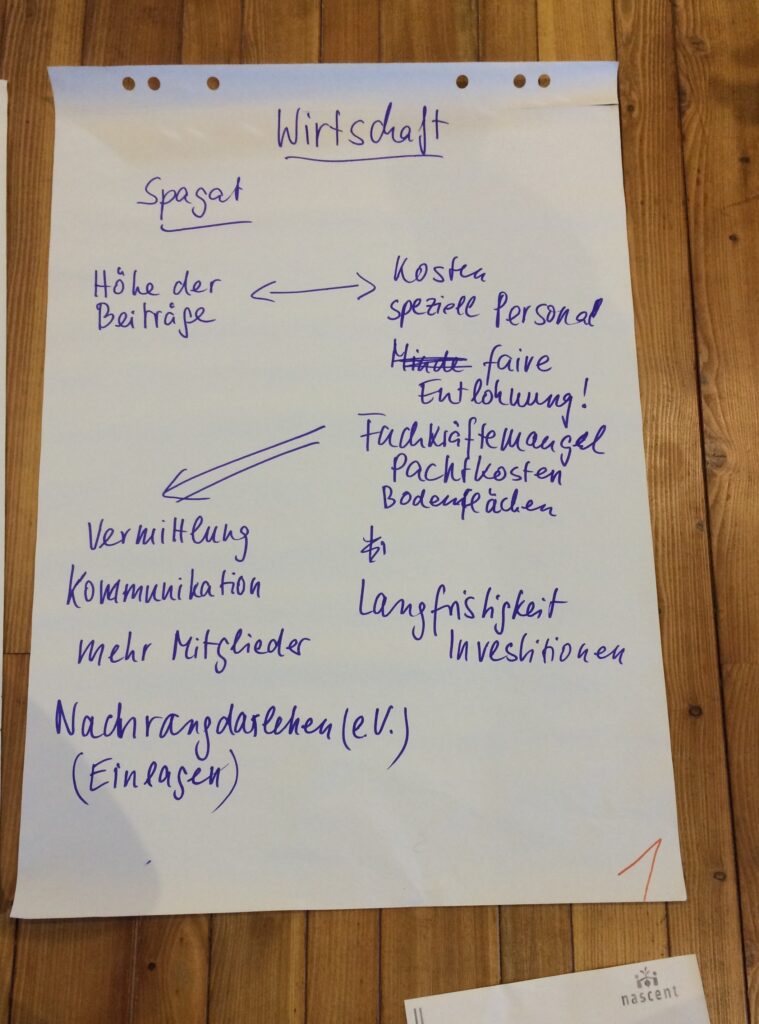 Wirtschaft
Spagat
Höhe der
Beiträge
Kosten
speziell Personal
Minde faire
Entlohnung!
Fachkräftemangel
Pachtkosten
Bodenflächen
Vermittlung
Kommunikation
mehr Mitglieder
Nachrangdarlehen (e.V.)
(Einlagen)
Langfristigkeit
Investitionen
1
nascent